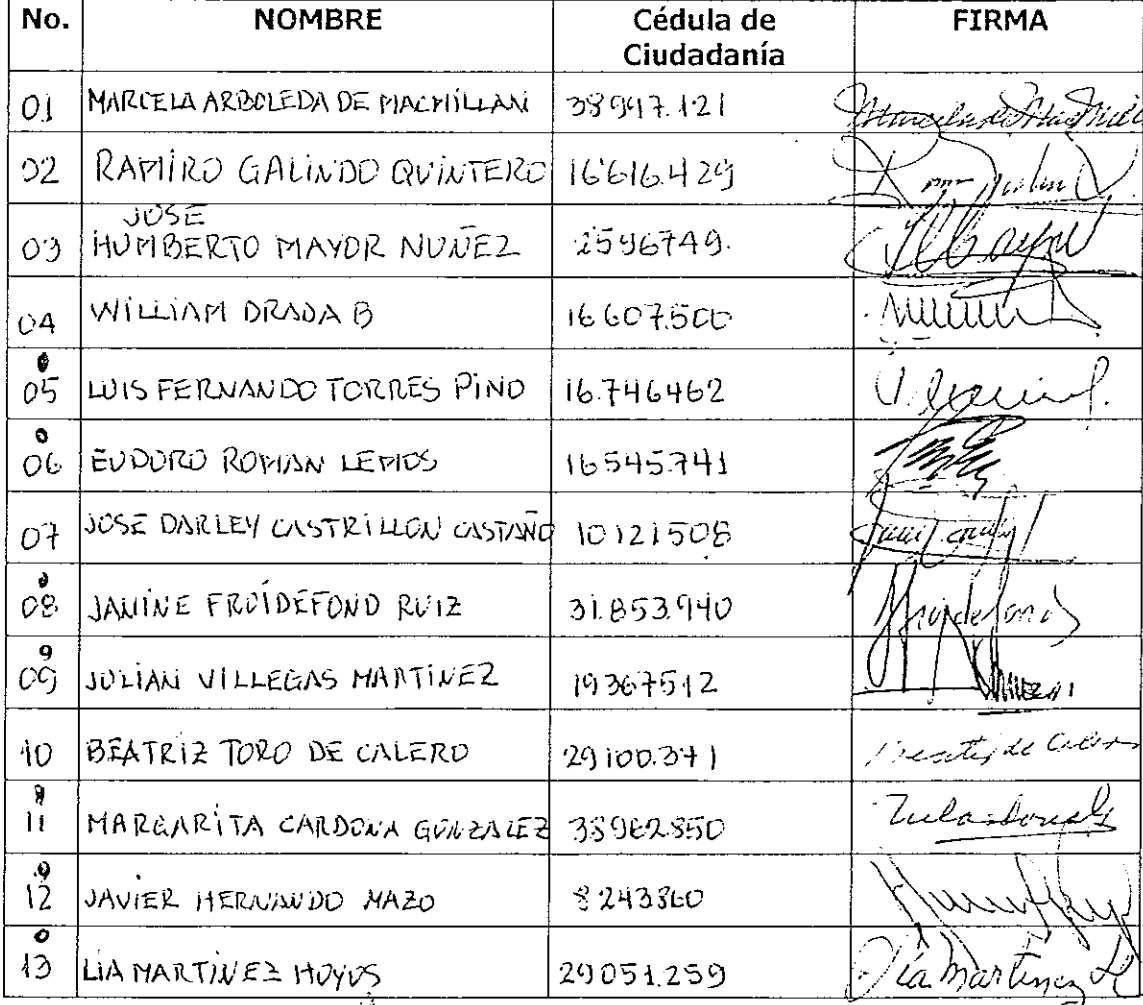 No. NOMBRE Cédula de Ciudadanía FIRMA
01 MARCELA ARBOLEDA DE MACMILLAN 38947.121
02 RAMIRO GALINDO QUINTERO 16616.429
JOSE
03 HUMBERTO MAYOR NUÑEZ 2596749.
04 WILLIAM DRADA B 16607.500
05 LUIS FERNANDO TORRES PINO 16.746462
06 EUDORO ROMAN LEMOS 16545.741
07 JOSE DARLEY CASTRILLON CASTAÑO 10121508
08 JANINE FROIDEFOND RUIZ 31.853.940 Froidefond
09 JULIAN VILLEGAS MARTINEZ 19367512
10 BEATRIZ TORO DE CALERO 29100.371 Beatriz de Calero
11 MARGARITA CARDONA GONZALEZ 38962.850
12 JAVIER HERNANDO MAZO 8243360
13 LIA MARTINEZ HOYOS 29051.259 Lía Martínez